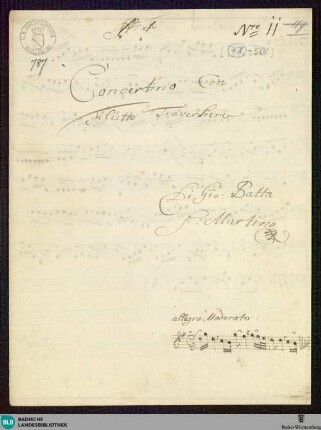 Nro 11
787
Concertino Con
Flutto Traversiero
Di Gio: Batta
St Martino
allegro Moderato
BLB
BADISCHE
LANDESBIBLIOTHEK
Baden-Württemberg